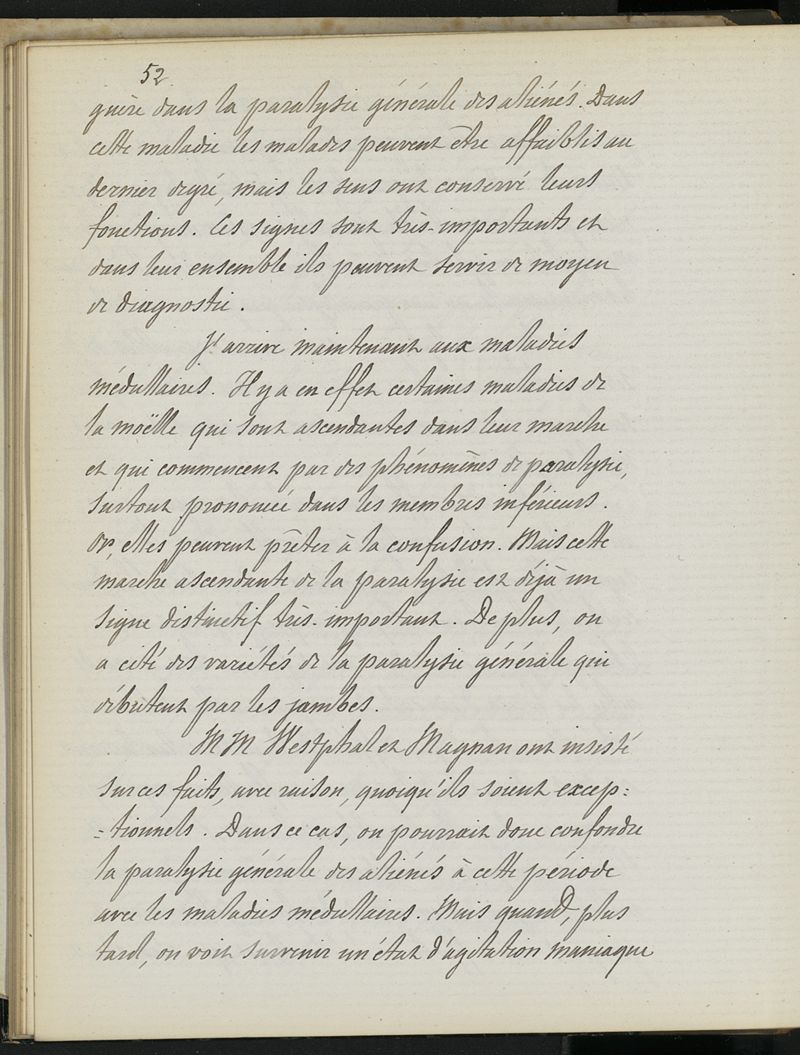 52
guère dans la paralysie générale des aliénés. Dans
cette maladie les malades peuvent être affaiblis au
dernier degré, mais les sens ont conservé leurs
fonctions. Ces signes sont très-importants et
dans leur ensemble ils peuvent servir de moyen
de diagnostic.
J'arrive maintenant aux maladies
médullaires. Il y a en effet certaines maladies de
la moëlle qui sont ascendantes dans leur marche
et qui commencent par des phénomènes de paralysie,
surtout prononcée dans les membres inférieurs.
Or, elles peuvent prêter à la confusion. Mais cette
marche ascendante de la paralysie est déjà un
signe distinctif très-important. De plus, on
a cité des variétés de la paralysie générale qui
débutent par les jambes.
MM Westphal et Magnan ont insisté
sur ces faits, avec raison, quoiqu'ils soient excep=
=tionnels. Dans ce cas, on pourrait donc confondre
la paralysie générale des aliénés à cette période
avec les maladies médullaires. Mais quand, plus
tard, on voit survenir un état d'agitation maniaque